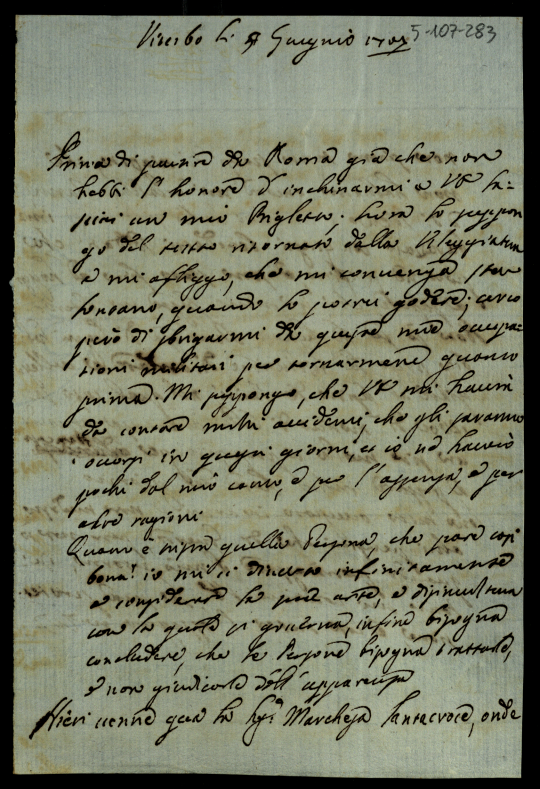 Viterbo li 8 Giugnio 1707
5-107-283
Prima di partire da Roma già che non
hebbi l'honore d'inchinarmi a VE la-
sciai un mio Biglietto; hora la suppon-
go del tutto ritornata dalla Vileggiatura
e mi afliggo, che mi convenga star
lontano, quando la potrei godere; cerco
però di sbrigarmi da queste mie occupa-
tioni militari per tornarmene quanto
prima. Mi suppongo, che VE mi haverà
da contare molti accidenti, che gli saranno
ocorsi in questi giorni, et io ne haverò
pochi dal mio canto, e per l'assenza, e per
altre ragioni
Quanto è mijra quella Persona, che pare così
bona! io mi ci diverto infinitamente
a considerare la sua arte, e disinvoltura
con la quale si governa, infine bisogna
concludere, che le Persone bisogna trattarle,
e non giudicarle dall'apparenza
Hieri venne qua la Sig.ra Marchesa Santacroce, onde